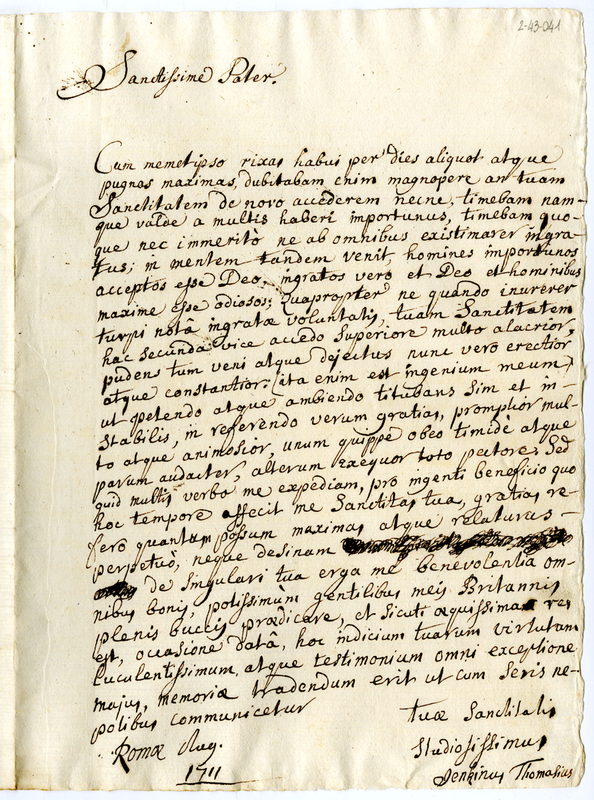 2-43-041
Sanctissime Pater.
Cum memetipso rixas habui per dies aliquot atque
pugnas maximas, dubitabam enim magnopere an tuam
Sanctitatem de novo accederem necne, timebam nam-
que valde a multis haberi importunus, timebam quo-
que nec immeritò ne ab omnibus existimarer ingra-
tus; in mentem tandem venit, homines importunos
acceptos esse Deo, ingratos vero et Deo et hominibus
maxime esse odiosos; Quapropter ne quando inurerer
turpi notâ ingratæ voluntatis, tuam Sanctitatem
hac secundâ vice accedo superiore multo alacrior,
pudens tum veni atque dejectus nunc vero erectior
atque constantior: (ita enim est ingenium meum)
ut petendo atque ambiendo titubans sim et in-
stabilis, in referendo verum gratias, promptior mul-
to atque animosior, unum quippe obeo timidè atque
parum audacter, alterum exequor toto pectore. Sed
quid multis verbis me expediam, pro ingenti beneficio quo
hoc tempore affecit me Sanctitas tua, gratias re-
fero quantas possum maximas atque relaturus-
perpetuò, neque desinam
de singulari tua erga me benevolentia om-
nibus bonis, potissimùm gentilibus meis Britannis
plenis buccis prædicare, et sicuti æquissima res
est, occasione datâ, hoc indicium tuarum virtutum
luculentissimum atque testimonium omni exceptione
majus, memoriæ tradendum erit ut cum seris ne-
potibus communicetur
tuæ Sanctitatis
Romæ Aug.
studiosissimus
1711
Jenkinus Thomasius